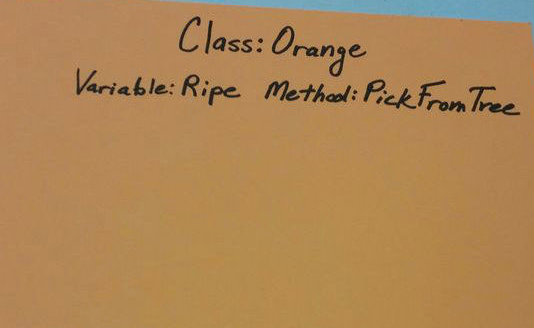 Class: Orange
Variable: Ripe Method: PickFromTree